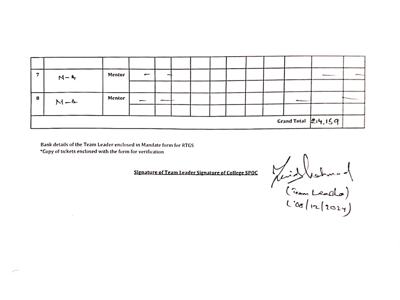 7 M-4 Mentor — — — —
8 M-4 Mentor — — — —
Grand Total
Bank details of the Team Leader enclosed in Mandate form for RTGS
*Copy of tickets enclosed with the form for verification
Signature of Team Leader Signature of College SPOC
(Team Leader)
(08/12/2024)